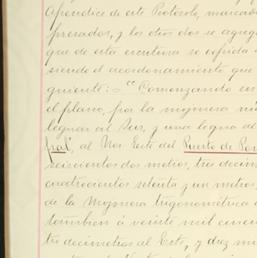 Apéndice de este Protocolo, marcado
presados, y los otros dos se agreg
que de esta escritura se espida a
siendo el acordonamiento que
guiente: Comenzando en
el plano, por la mojonera nú
legua al Sur, y una legua al
fral, al Nor Este del Puerto de Por
seiscientos dos metros, tres decim
cuatrocientos setenta y un metros,
de la Mojonera trigonométrica
tambien á veinte mil cinco
tres decímetros al Este, y diez mi